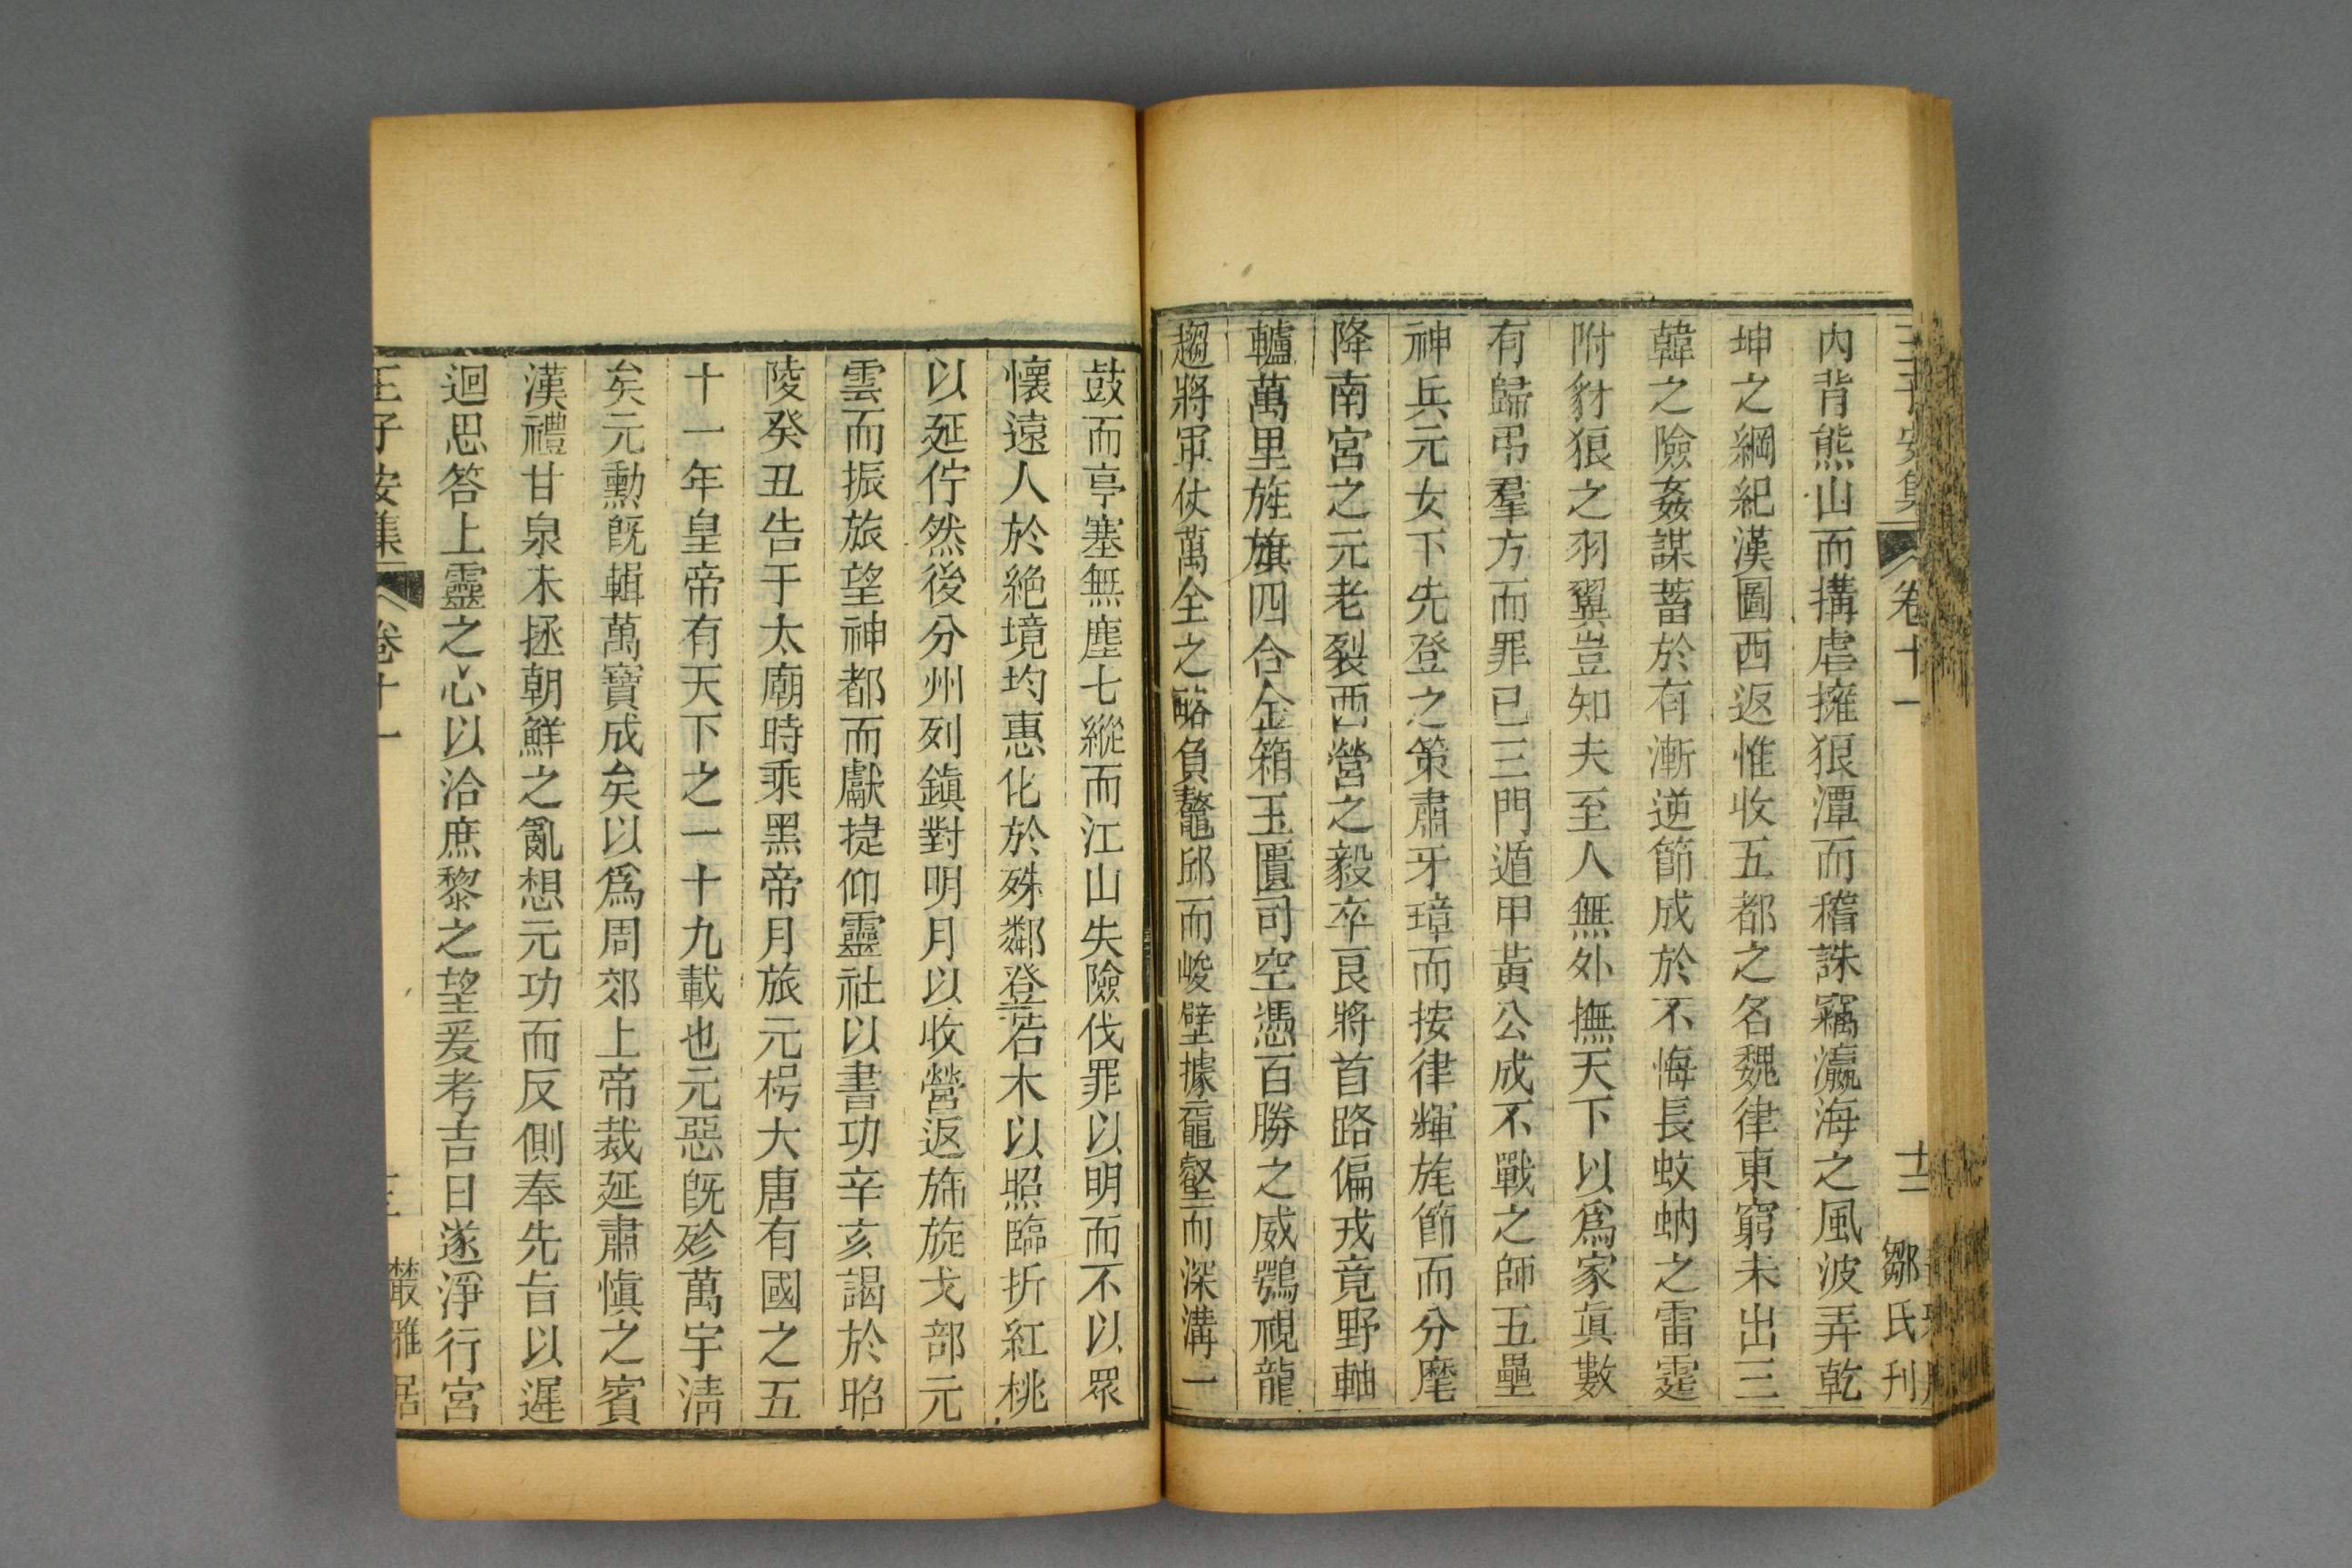 王子安集 卷十一 十二 鄒氏刊
內背熊山而搆虐擁狼潭而稽誅竊瀛海之風波弄乾
坤之綱紀漢圖西返惟收五都之名魏律東窮未出三
韓之險姦謀蓄於有漸逆節成於不悔長蚊蚋之雷霆
附豺狼之羽翼豈知夫至人無外撫天下以爲家眞數
有歸弔羣方而罪已三門遁甲黃公成不戰之師五壘
神兵元女下先登之策肅牙璋而按律輝旄節而分麾
降南宮之元老裂西營之毅卒良將首路偏戎竟野軸
轤萬里旌旗四合金箱玉匱司空憑百勝之威鶚視龍
趨將軍仗萬全之略負鼇邱而峻壁據黿壑而深溝一
鼓而亭塞無塵七縱而江山失險伐罪以明而不以眾
懷遠人於絶境均惠化於殊鄰登若木以照臨折紅桃
以延佇然後分州列鎮對明月以收營返旆旋戈部元
雲而振旅望神都而獻捷仰靈社以書功辛亥謁於昭
陵癸丑告于太廟時乘黑帝月旅元枵大唐有國之五
十一年皇帝有天下之一十九載也元惡既殄萬宇淸
矣元勳旣輯萬寶成矣以爲周郊上帝裁延肅愼之賓
漢禮甘泉未拯朝鮮之亂想元功而反側奉先旨以遲
迴思答上靈之心以洽庶黎之望爰考吉日遂淨行宮
王子安集 卷十一 叢雅居